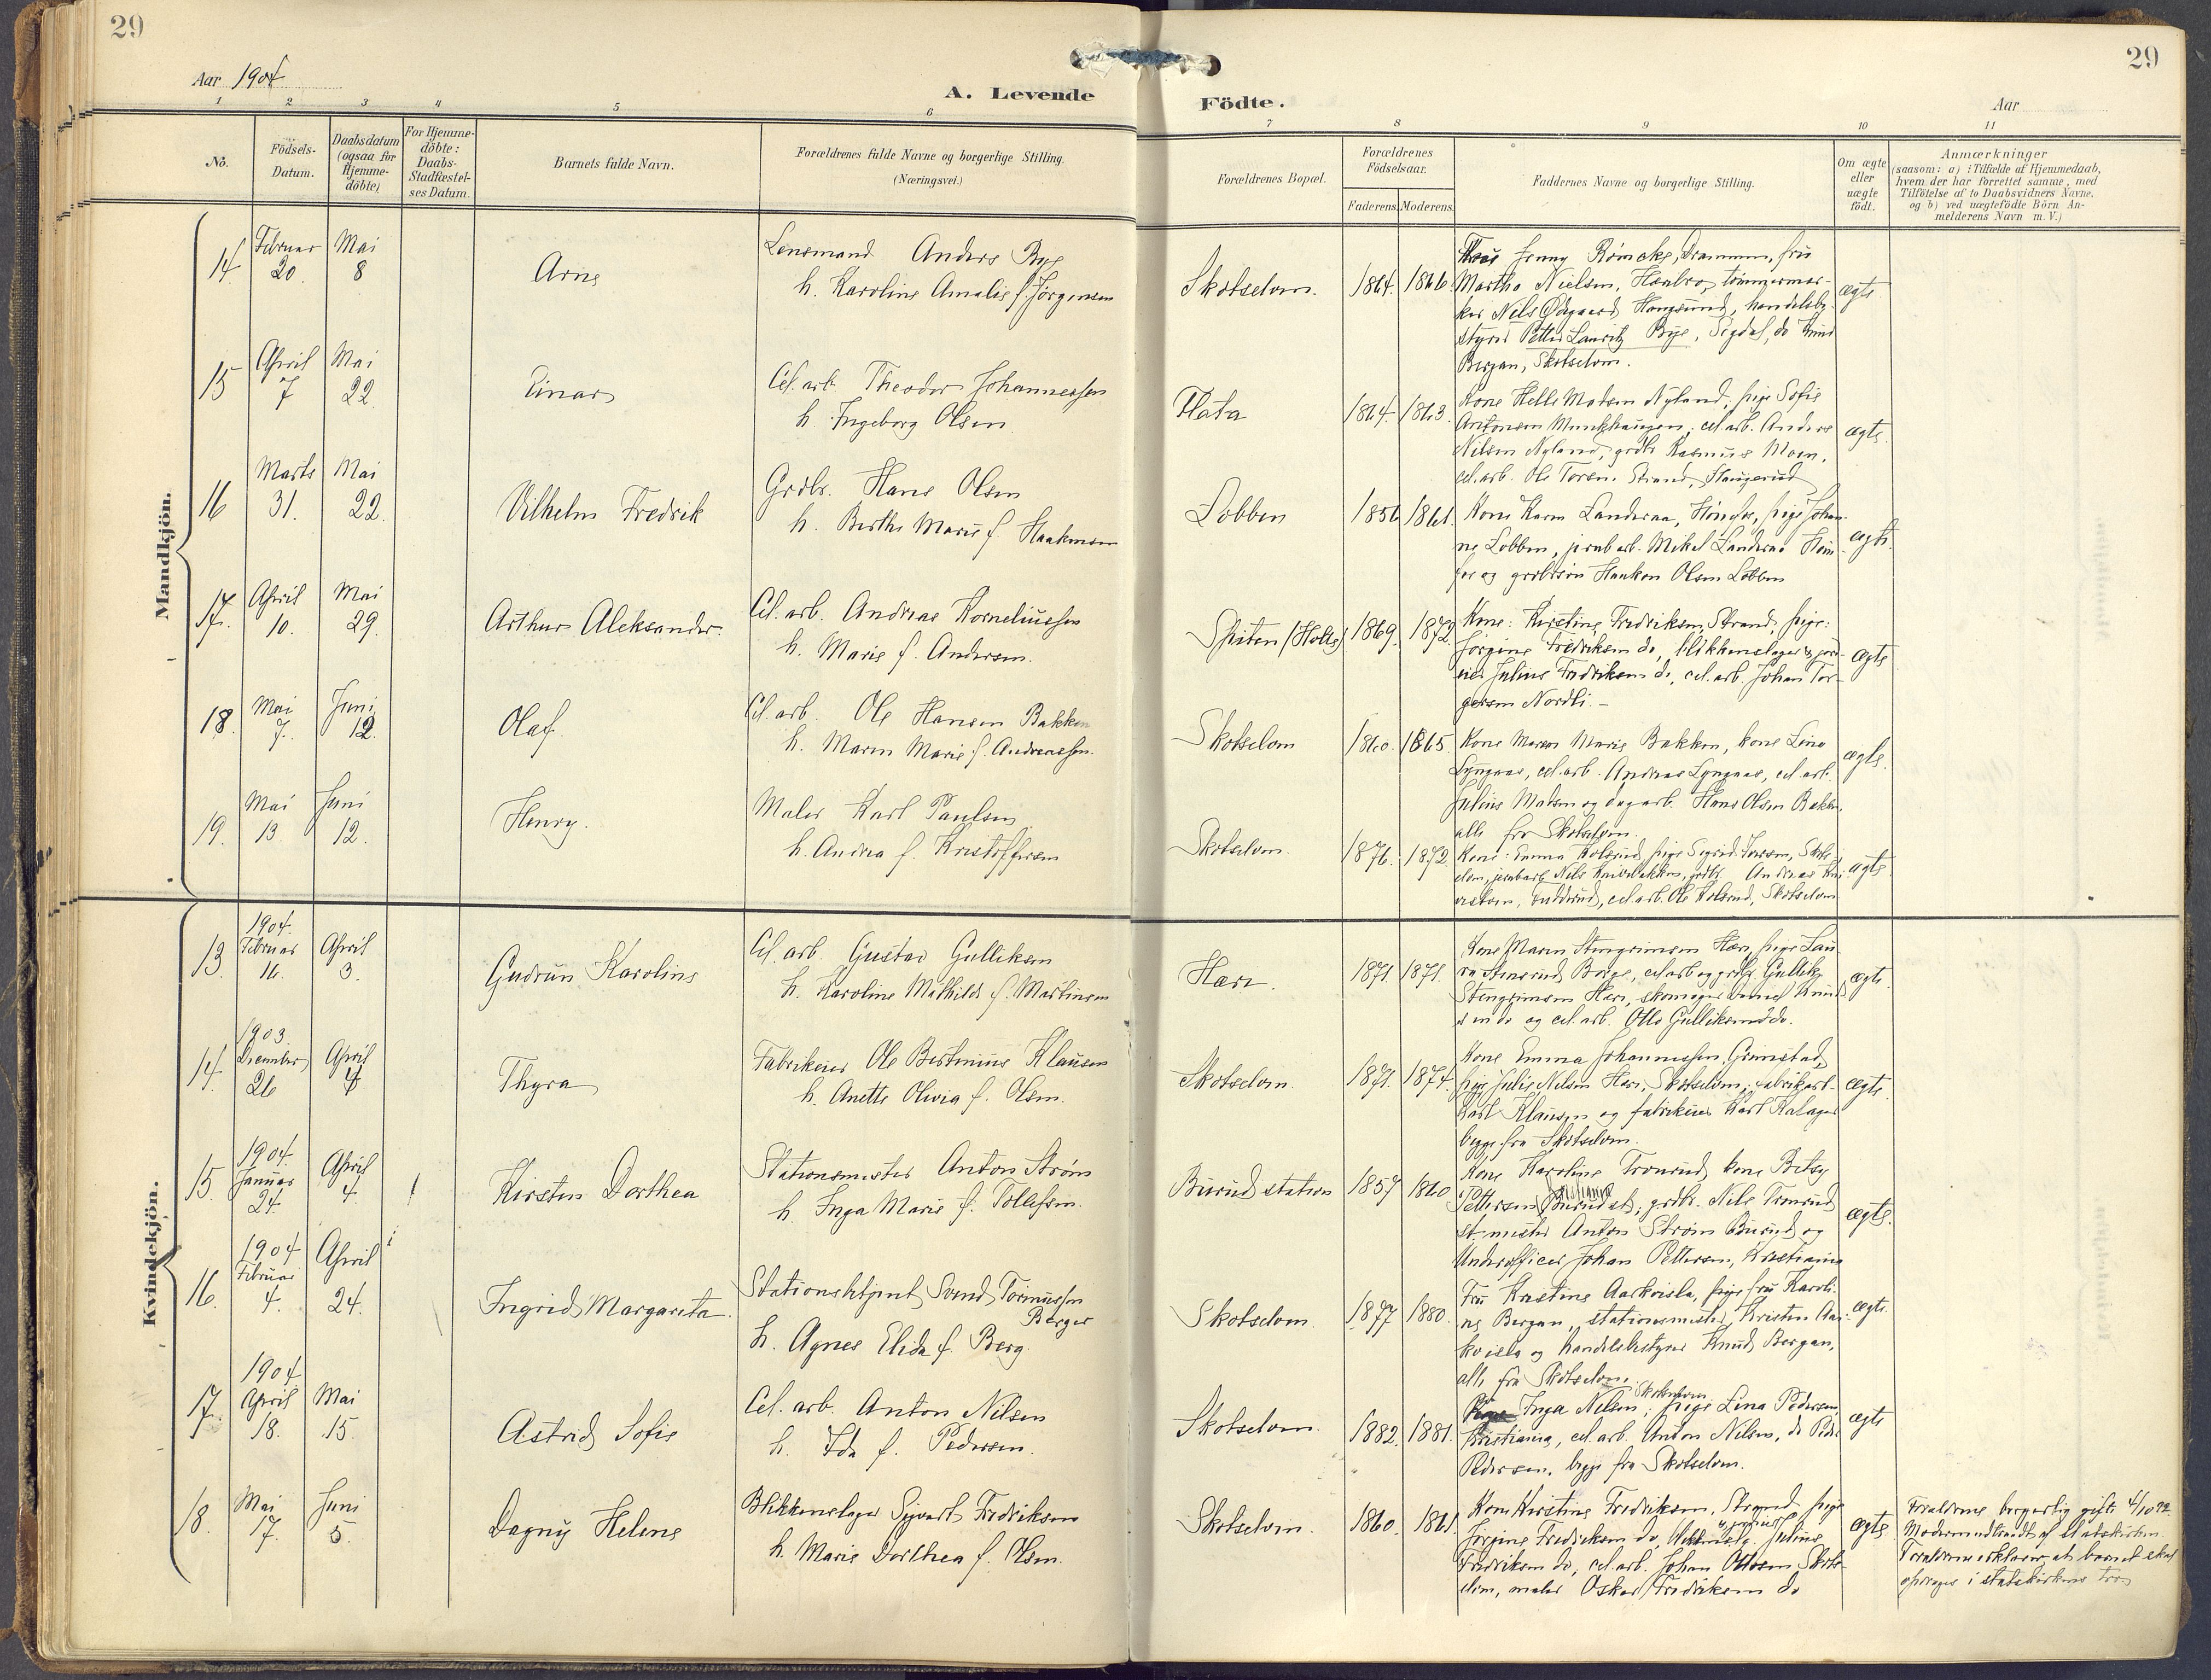 29
29
Aar 1904
A. Levende
Födte.
Aar
1 2 3 4 5 6 7 8 9 10 11
No.
Födsels-
Datum.
Daabsdatum
(ogsaa for
Hjemme-
döbte)
For Hjemme-
döbte:
Daabs-
Stadfæstel-
ses Datum.
Barnets fulde Navn.
Forældrenes fulde Navne og borgerlige Stilling.
(Næringsvei.)
Forældrenes Bopæl.
Forældrenes
Födselsaar.
Faderens. Moderens.
Faddernes Navne og borgerlige Stilling.
Om ægte
eller
uægte
födt.
Anmærkninger
(saasom: a) i Tilfælde af Hjemmedaab,
hvem der har forrettet samme, med
Tilföielse af to Daabsvidners Navne.
og b) ved uægtefödte Börn An-
melderens Navn m.V.)
Mandkjön.
14. Februar 20. Mai 8 Arne
Lensmand Anders Bye
h. Karoline Amalie f. Jørgensen
Skotselven. 1864. 1866.
Jenny Drammen, fru
Martha Nielsen, tømmermær-
ker Nils Ødegaard Hougsund, handelsbe-
styrer Petter Lauritz Bye, Sigdal, do Knud
Bergan, Skotselven.
ægte
15 April 7 Mai 22. Einar
Cel. arb. Theodor Johannessen
h. Ingeborg Olsen
Flata 1864. 1863.
Kone Helle Madsen Nyland, pige Sofie
Antonsen Munkhaugen, cel. arb. Anders
Nilsen Nyland, grdbr Rasmus Moen,
cel. arb. Ole Torsen Strand, Haugerud
ægte.
16 Marts 31. Mai 22. Vilhelm Fredrik
Grdbr. Hans Olsen
h. Berthe Marie f. Haakensen
Lobben 1856 1861.
Kone Karen Landeraa, Hønefos, pige Johan-
ne Lobben, jernb arb. Mikel Landeraa Høne-
fos og grdbrsøn Haaken Olsen Lobben
ægte.
17. April 10. Mai 29. Arthur Aleksander.
Cel. arb. Andreas Korneliussen
h. Marie f. Andersen.
Spiten (Holte) 1869. 1872.
Kone: Kirstine Fredriksen, Strand, pige:
Jørgine Fredriksen do, blikkenslager & jord-
eier Julius Fredriksen do, cel. arb. Johan Tor-
gersen Nordli. –
ægte
18. Mai 7. Juni 12. Olaf.
Cel. arb. Ole Hansen Bakken
h. Maren Marie f. Andreassen.
Skotselven 1860. 1865.
Kone Maren Marie Bakken, kone Lina
Lyngaas, cel. arb. Andreas Lyngaas, cel. arb.
Julius Madsen og dagarb. Hans Olsen Bakken,
alle fra Skotselven.
ægte.
19. Mai 13. Juni 12. Henry.
Maler Karl Paulsen
h. Andrea f. Kristoffersen
Skotselven. 1876. 1872.
Kone: Emma Kolsrud, pige Sigrid Iversen, Skots-
elven, jernbarb Nils grdbr Andreas
cel. arb. Ole Kolsrud, Skotselven
ægte.
Kvindekjön.
13. 1904. Februar 16. April 3. Gudrun Karoline
Cel. arb Gustav Gulliksen
h. Karoline Mathilde f. Martinsen
Hær. 1871. 1871.
Kone Maren Stengrimsen Hær, pige Lau-
ra Borge, cel arb og grdbr. Gullik
Stengrimsen Hær, skomager Daniel Knud-
sen do og cel. arb. Otto Gulliksen do.
ægte.
14. 1903. December 26 April 4 Thyra
Fabrikeier Ole Bertinius Klausen
h. Anette Olivia f. Olsen.
Skotselven. 1871. 1874.
Kone Emma Johannessen, Grimstad,
pige Julie Nilsen Hær, Skotselven, fabrikarb.
Karl Klausen og fabrikeier Karl Kalager
begge fra Skotselven.
ægte.
15. 1904. Januar 24. April 4. Kirsten Dorthea
Stationsmester Anton Strøm
h. Inga Marie f. Tollefsen.
Burud station 1857 1860
Kone Karoline Tronrud, kone Betsy
Pettersen Kristiania, grdbr. Nils Tronrud
st.mester Anton Strøm Burud og
Underofficer Johan Pettersen, Kristiania
ægte.
16. 1904 Februar 4. April 24. Ingrid Margarita.
Stationsbtjent Svend Tormussen
Berger
h. Agnes Elida f. Berg.
Skotselven. 1877 1880.
Fru Kristine Aarkvisla, pige fru Karoli-
ne Bergan, stationsmester Kristen Aar-
kvisla og handelsbstyrer Knud Bergan,
alle fra Skotselven.
ægte.
17. 1904 April 18. Mai 15. Astrid Sofie
Cel. arb. Anton Nilsen
h. Ida f. Pedersen.
Skotselven. 1882. 1881.
Skotselven.
Inga Nilsen, pige Lina Pedersen,
Kristiania, cel. arb. Anton Nilsen, do Peder
Pedersen, begge fra Skotselven.
ægte
18. Mai 17. Juni 5. Dagny Helene
Blikkenslager Sigvart Fredriksen
h. Marie Dorthea f. Olsen.
Skotselven. 1860. 1861.
Kone Kirstine Fredriksen, Strand, pige
Jørgine Fredriksen do, Julius
Fredriksen do, cel. arb. Johan Ottosen Skots-
elven, maler Oskar Fredriksen do
ægte
Forældrene borgerlig gifte 4/10 92.
Moderen udtraadt af statskirken.
Forældrene erklærer, at barnet skal
opdrages i statskirkens tro